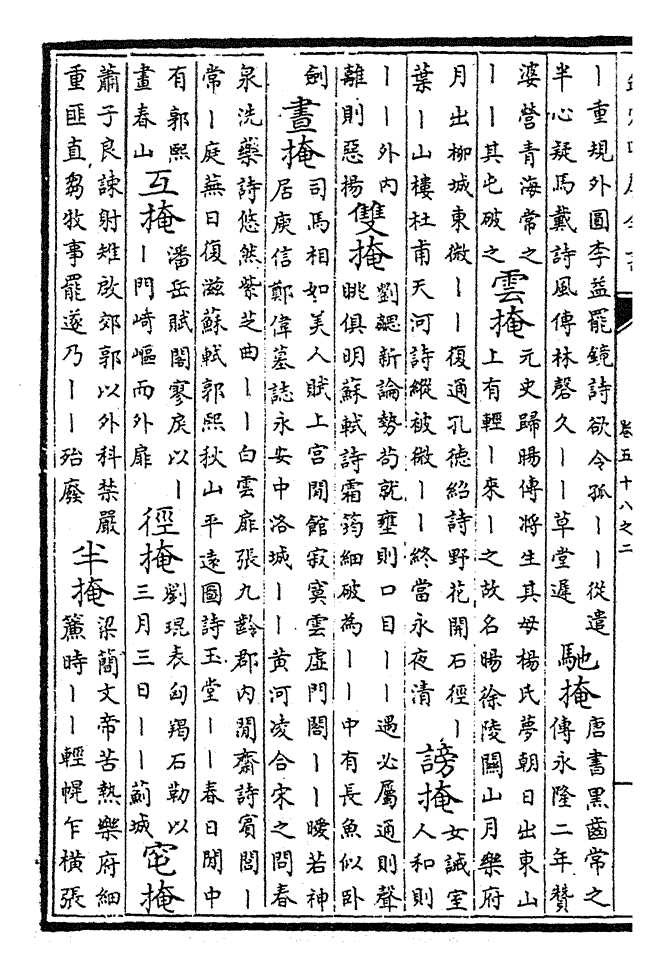 卷五十八之二
丨重規外圓李益罷鏡詩欲令孤丨丨從遣
半心疑馬戴詩風傳林磬久丨丨草堂遲
馳掩
唐書黑齒常之
傳永隆二年贊
婆營青海常之
丨丨其屯破之
雲掩
元史歸暘傳將生其母楊氏夢朝日出東山
上有輕丨來丨之故名暘徐陵關山月樂府
月出柳城東微丨丨復通孔德紹詩野花開石徑丨
葉丨山樓杜甫天河詩縱被微丨丨終當永夜清
謗掩
女誡室
人和則
丨丨外內
離則惡揚
雙掩
劉勰新論勢苟就壅則口目丨丨遇必屬通則聲
眺俱明蘇軾詩霜筠細破為丨丨中有長魚似卧
劍
晝掩
司馬相如美人賦上宮閒館寂寞雲虛門閤丨丨曖若神
居庾信鄭偉墓誌永安中洛城丨丨黃河凌合宋之問春
泉洗藥詩悠然紫芝曲丨丨白雲扉張九齡郡內閒齋詩賓閤丨
常丨庭蕪日復滋蘇軾郭熙秋山平遠圖詩玉堂丨丨春日閒中
有郭熙
畫春山
互掩
潘岳賦閣寥戾以丨
丨門崎嶇而外扉
徑掩
劉琨表匈羯石勒以
三月三日丨丨薊城
宅掩
蕭子良諫射雉啟郊郭以外科禁嚴
重匪直芻牧事罷遂乃丨丨殆廢
半掩
梁簡文帝苦熱樂府細
簾時丨丨輕幌乍橫張